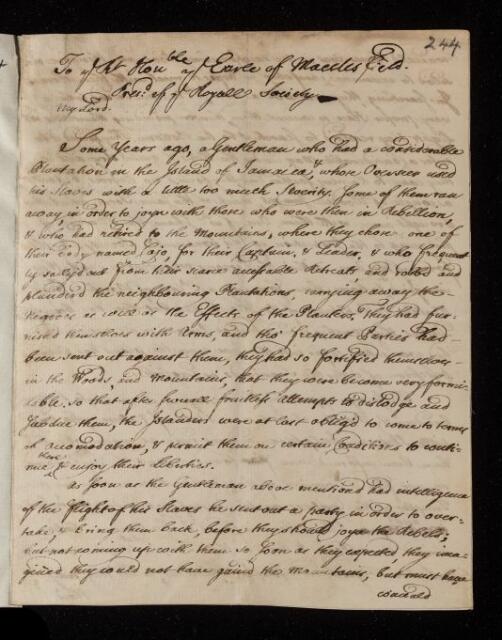 244
To ye Rt Honble ye Earle of Macclesfield.
Presd of ye Royall Society
My Lord.
Some Years ago, a Gentleman who had a considerable
Plantation in the Island of Jamaica, & whose Overseer used
his Slaves with a little too much Severity. Some of them ran
away, in order to joyn with those who were then in Rebellion,
& who had retired to the Mountains, where they chose one of
their Body named Cajo, for their Captain, & Leader, & who frequent
ly sallyed out from their scarce accessable Retreats, and robed and
plunderd the neighbouring Plantations, carrying away the
Negroe's as well as the Effects of the Planters. They had fur-
nished themselves with Arms, and tho' frequent Parties had
been sent out against them, they had so fortified themselves
in the Woods and Mountains, that they were become very formi-
dable. so that after several fruitless attempts to dislodge and
Subdue them, the Islanders were at last oblig'd to come to terms
of accomodation, & permit them on certain Conditions to conti-
nue there & enjoy their liberties.
As soon as the Gentleman above mentioned had intelligence
of the flight of his Slaves he sent out a party in order to over-
take, & bring them back, before they should joyn the Rebels;
but not coming up with them so soon as they expected, they ima-
gined they could not have gaind the Mountains, but must have